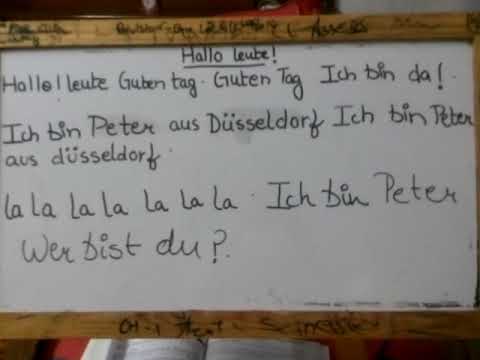 Hallo leute!
Hallo! leute Guten tag. Guten Tag Ich bin da!
Ich bin Peter aus Düsseldorf Ich bin Peter
aus düsseldorf.
la la la la la la la. Ich bin Peter
Wer bist du?